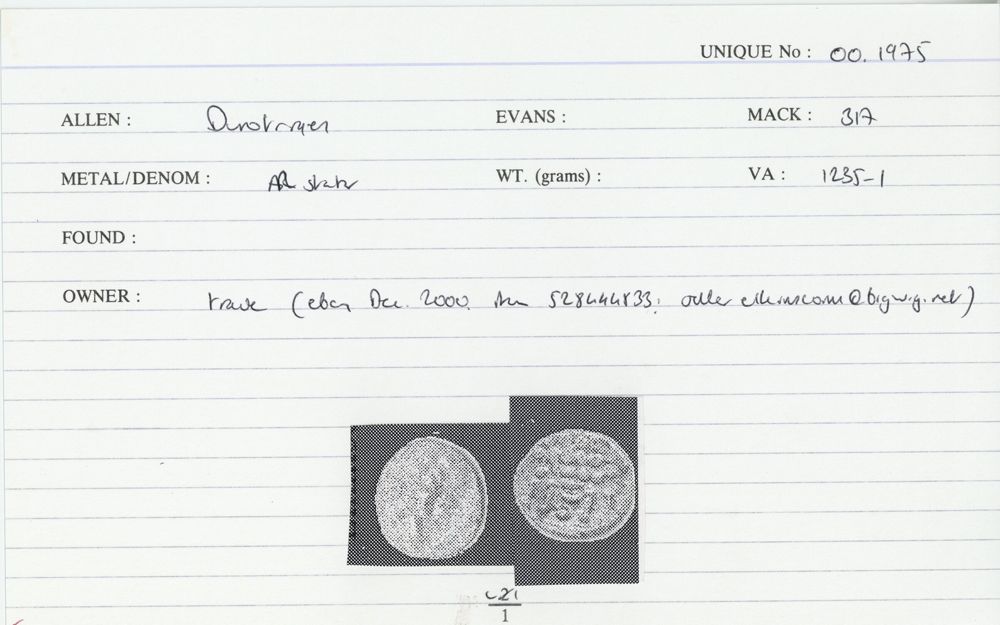 UNIQUE No : 00.1975
ALLEN : Durotrigan EVANS : MACK : 317
METAL/DENOM : AR stater WT. (grams) : VA : 1235-1
FOUND :
OWNER : trade (ebay Dec. 2000. 528444833;
1